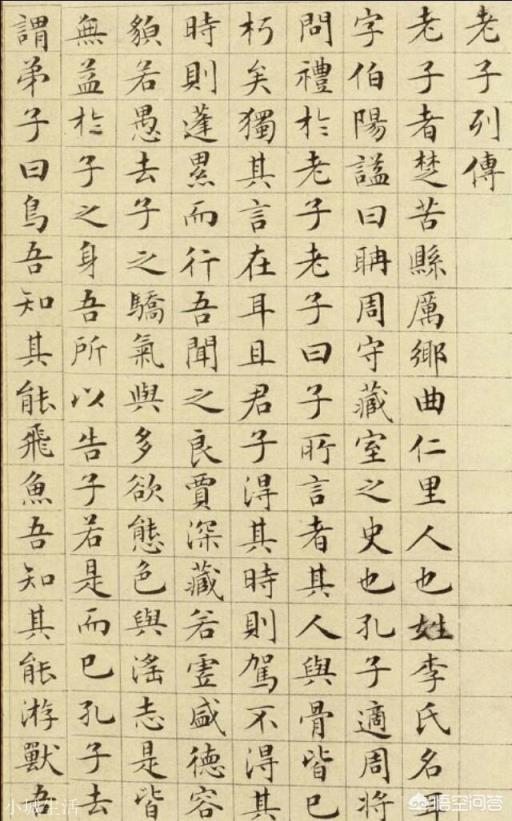 老子列傳
老子者楚苦縣厲鄉曲仁里人也姓李氏名耳
字伯陽謚曰聃周守藏室之史也孔子適周將
問禮於老子老子曰子所言者其人與骨皆已
朽矣獨其言在耳且君子得其時則駕不得其
時則蓬累而行吾聞之良賈深藏若虛盛德容
貌若愚去子之驕氣與多欲態色與淫志是皆
無益於子之身吾所以告子若是而已孔子去
謂弟子曰鳥吾知其能飛魚吾知其能游獸吾
小城生活
悟空问答